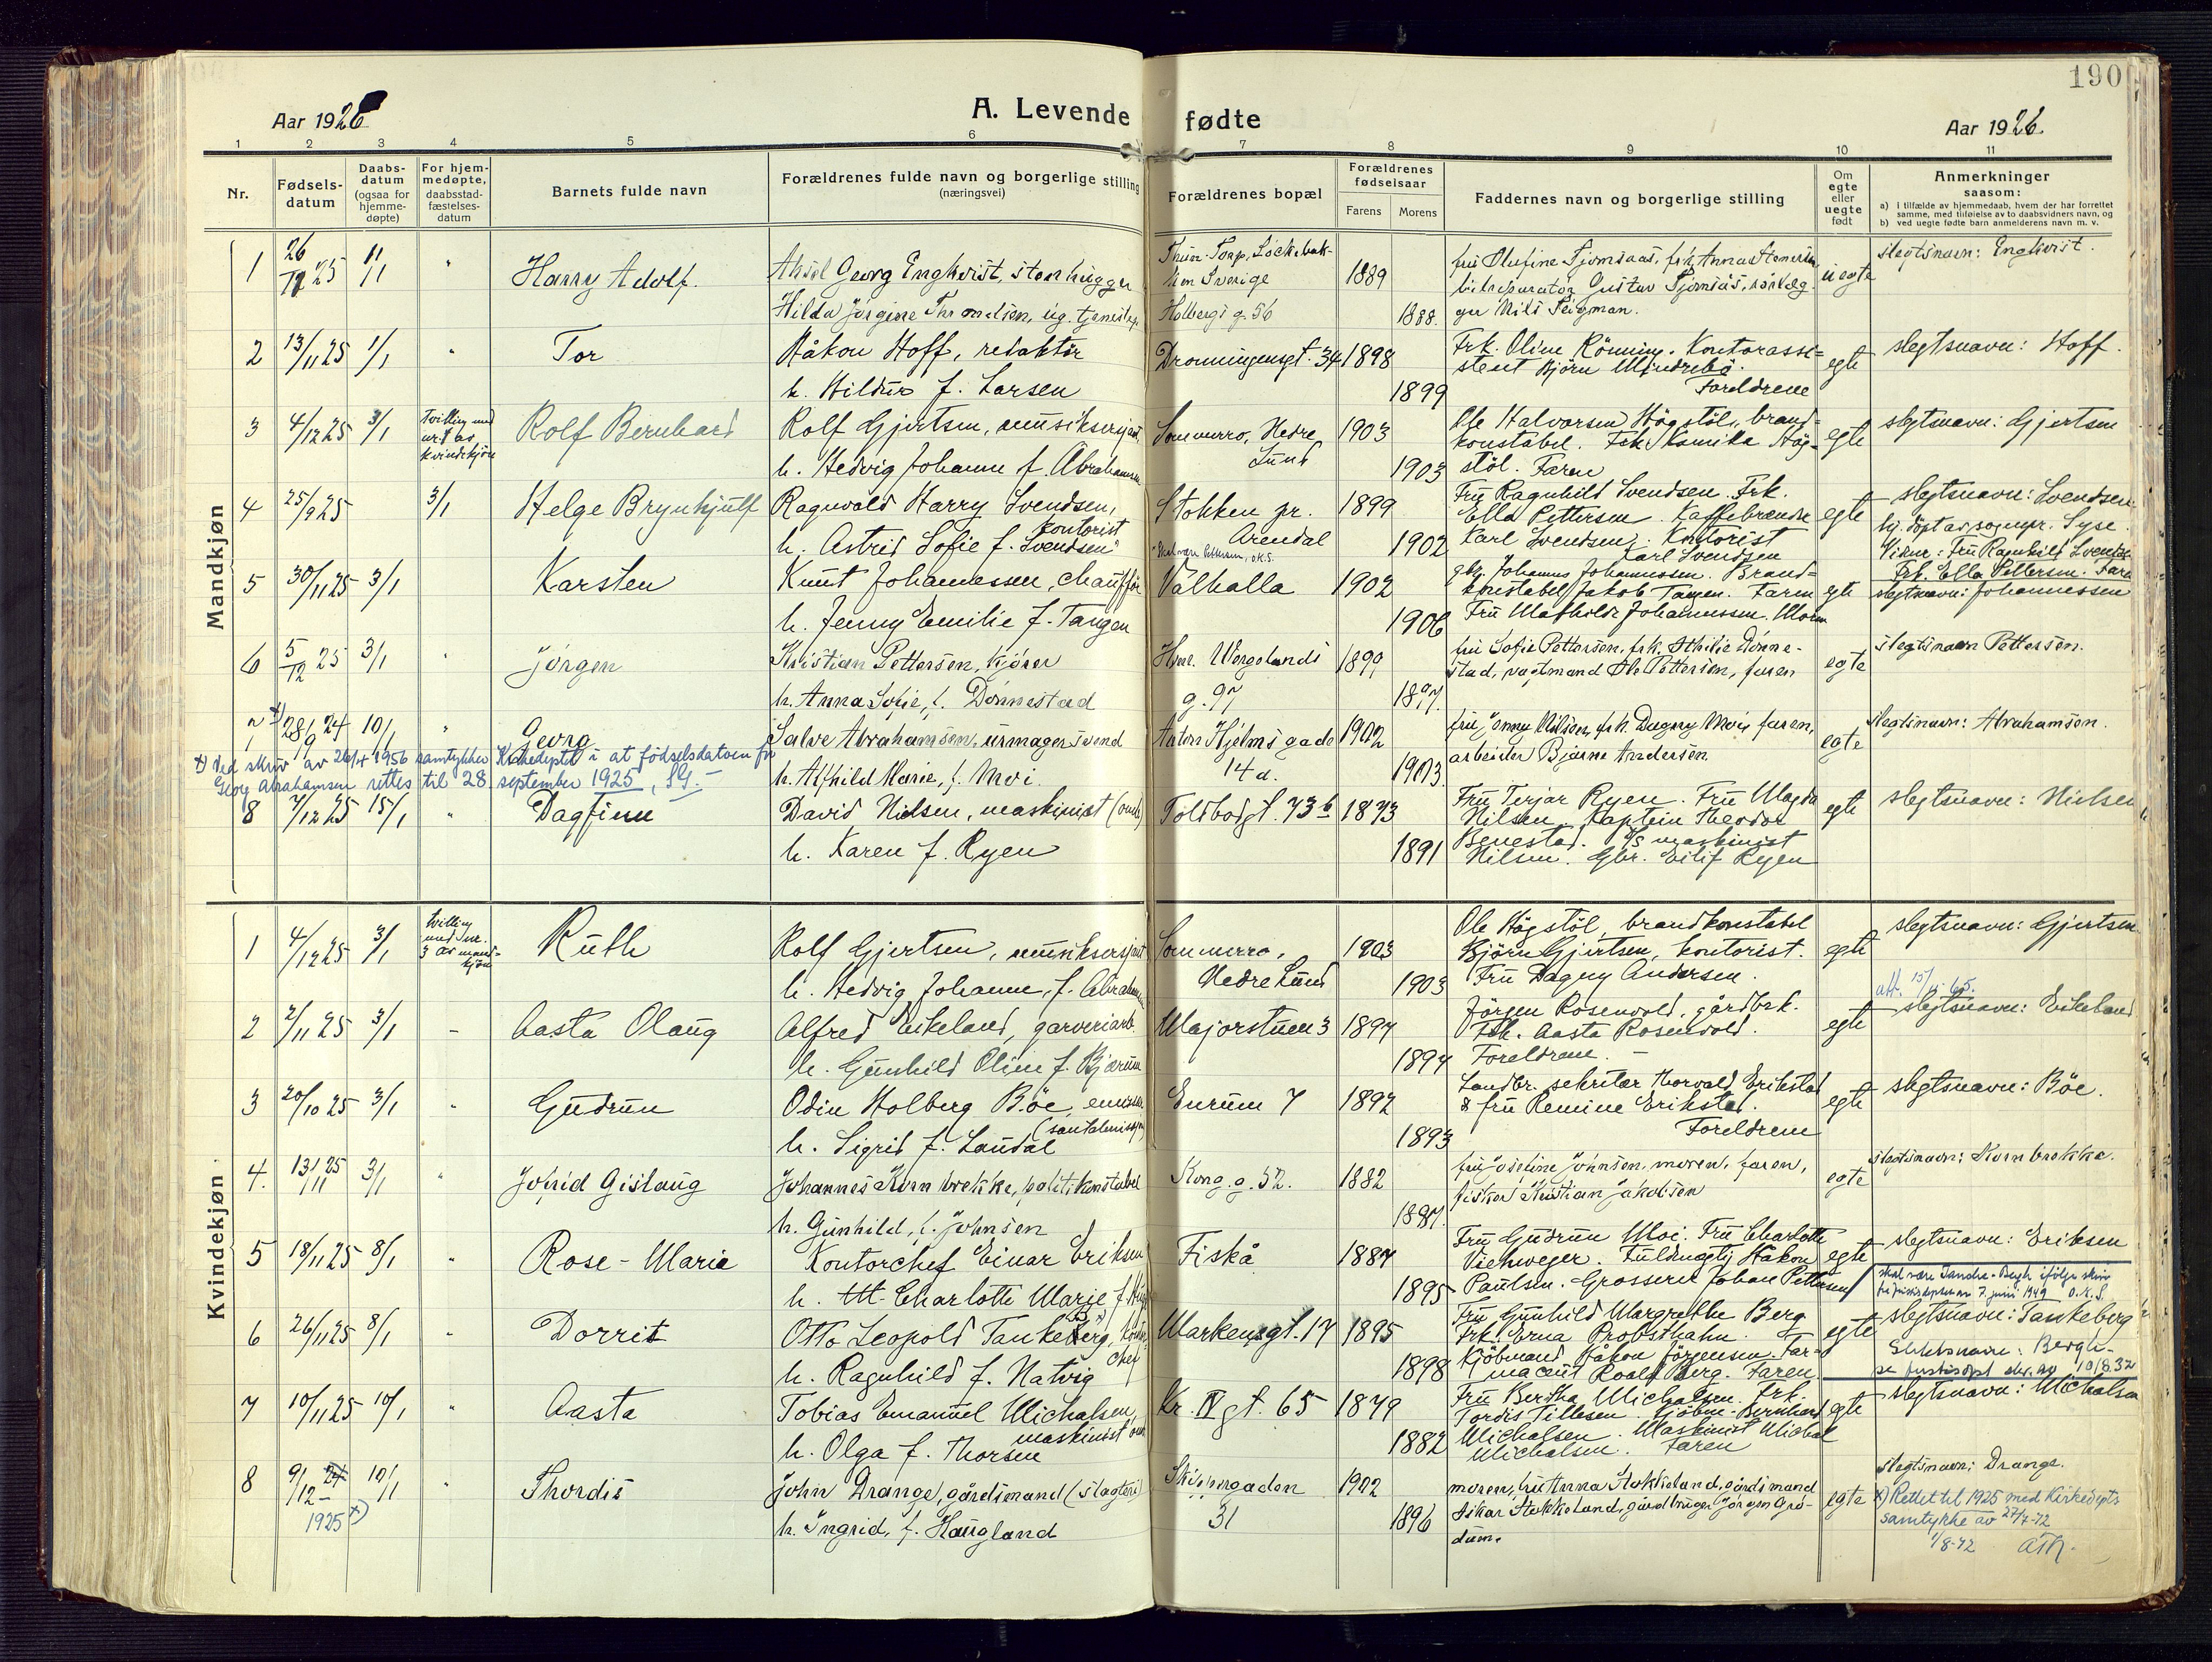 190
Aar 1926
A. Levende fødte
Aar 1926.
1 2 3 4 5 6 7 8 9 10 11
Nr.
Fødsels-datum
Daabs-datum (ogsaa for hjemme-døpte)
For hjem-medøpte, daabsstad-fæstelses-datum
Barnets fulde navn
Forældrenes fulde navn og borgerlige stilling (næringsvei)
Forældrenes bopæl
Forældrenes fødselsaar
Farens Morens
Faddernes navn og borgerlige stilling
Om egte eller uegte født
Anmerkninger saasom:
a) i tilfælde av hjemmedaab, hvem der har forrettet samme, med tilføielse av to daabsvidners navn, og
b) ved uegte fødte barn anmelderens navn m. v.
Mandkjøn
1 26/12 25 1/1 " Harry Adolf. Aksel Georg Engkvist, stenhugger Sverige 1889 fru Olufine Tjomsaas, frk. Anna uegte slegtsnavn: Engkvist.
Hilda Jørgine Thomalsen, ug. Holbergs g. 56 1888. Gustav Tjomsås, Nils
2 13/11 25 1/1 " Tor Håkon Hoff, redaktør Dronningensgt. 34 1898 Frk. Oline Rönning. Kontorassi= egte slegtsnavn: Hoff.
h. Hildur f. Larsen 1899 stent Björn Foreldrene
3 4/12 25 3/1 Tvilling med nr. 1 av kvindekjøn Rolf Bernhard Rolf Gjertsen, musiksersjant Sommerro, Nedre Lund 1903 Ole Halvorsen Högstöl, brand= egte slegtsnavn: Gjertsen
h. Hedvig Johanne f. Abrahamsen 1903 konstabel. Frk. Hög=stöl. Faren
4 25/9 25 3/1 Helge Brynhjulf Ragnvald Harry Svendsen, kontorist Stokken pr. Arendal 1899 Fru Ragnhild Svendsen. Frk. egte slegtsnavn: Svendsen
h. Astrid Sofie f. Svendsen 1902 Ella Pettersen. Karl Svendsen. Kontorist Karl Svendsen hj. döpt av sognepr. Syse.
Fru Ragnhild Svendsen
Frk. Ella Pettersen. Faren
5 30/11 25 3/1 Karsten Knut Johannessen, chauffør Valhalla 1902 gbr. Johannes Johannessen. Brand= egte slegtsnavn: Johannessen
h. Jenny Emilie f. Tangen 1906 konstabel Jakob Tangen. Faren Fru Mathilde Johannessen. Moren
6 5/12 25 3/1 " Jörgen Kristian Pettersen, kjører Henr. Wergelands g. 97 1899 fru Sofie Pettersen, frk. Dønne- egte slegtsnavn Pettersen.
h. Anna Sofie, f. Dønnestad 1897. stad, vagtmand Ole Pettersen, faren
7 +) 28/9 24 10/1 " Georg Salve Abrahamsen, urmagersvend Anton Hjelms gade 14 a. 1902 fru Jenny Nilsen, frk. Dagny Moi, faren, egte slegtsnavn: Abrahamsen.
h. Alfhild Marie, f. Moi. 1903. arbeider Bjarne Andersen
+) Ved skriv av 26/4 1956 samtykker Kirkedeptet i at fødselsdatoen for
Georg Abrahamsen rettes til 28. september 1925,
8 7/12 25 15/1 " Dagfinn David Nielsen, maskinist Toldbodgt. 73 b 1873 Fru Terjar Ryen. Fru Magda egte slegtsnavn: Nielsen
h. Karen f. Ryen 1891 Nilsen. Kaptein Theodor Benestad. maskinist Nilsen. Gbr. Eilif Ryen
Kvindekjøn
1 4/12 25 3/1 tvilling med nr. 3 av mand-kjøn Ruth Rolf Gjertsen, musiksersjant Sommerro, Nedre Lund 1903 Ole Högstöl, brandkonstabel egte slegtsnavn: Gjertsen
h. Hedvig Johanne, f. Abrahamsen 1903 Björn Gjertsen, kontorist. Fru Dagny Andersen.
2 2/11 25 3/1 - Aasta Olaug Alfred Eikeland, garveriarb. Majorstuen 3 1897 Jörgen Rosenvold, gårdbrk. egte slegtsnavn: Eikeland
h. Gunhild Oline f. Bjærum 1894 Frk. Aasta Rosenvold. Foreldrene. -
3 20/10 25 3/1 " Gudrun Odin Holberg Böe, Enrum 7 1892 Landbr. sekretær Thorvald Erikstad egte slegtsnavn: Böe.
h. Sigrid f. Laudal 1893 & fru Remine Erikstad. Foreldrene
4. 13/11 25 3/1 " Jofrid Gislaug Johannes Kornbrekke, politikonstabel Kong. g. 52. 1882 fru Joseline Johnsen, moren, faren, egte slegtsnavn: Kornbrekke.
h. Gunhild, f. Johnsen 1887. fisker Kristian Jakobsen
5 18/11 25 8/1 " Rose-Marie Kontorchef Einar Eriksen Fiskå 1887 Fru Gudrun Moi. Fru Charlotte egte slegtsnavn: Eriksen
h. Charlotte Marie 1895 Viehweger. Fuldmægtig Håkon Paulsen. Grosserer Johan Pettersen
6 26/11 25 8/1 " Dorrit Otto Leopold Tankeberg, Kontorchef Markensgt. 17 1895 Fru Gunhild Margrethe Berg egte slegtsnavn: Tankeberg
h. Ragnhild f. Natvig 1898 Frk. Erna Probsthahn. Kjöbmand Håkon Jörgensen. Far-maceut Roald Berg. Faren
7 juni 1949 O. K. S.
10/8 32
7 10/11 25 10/1 " Aasta Tobias Emanuel Michalsen, maskinist Kr. IV gt. 65 1879 Fru Bertha Michalsen. Frk. egte slegtsnavn: Michalsen
h. Olga f. Thorsen 1882 Tordis Tillesen. Kjöbm. Bernhard Michalsen. Maskinist Michal Michalsen. Faren
8 9/12 24 1925 +) 10/1 " Thordis John Drange, gårdsmand (slagteri) Skippergaden 31 1902 moren, fru Anna Stokkeland, gårdsmand egte slegtsnavn: Drange.
h. Ingrid, f. Haugland 1896 Stokkeland, gårdbruger Jörgen Gro-dum.
x) Rettet til 1925 med Kirkedepts
samtykke av 27/7-72
1/8-72